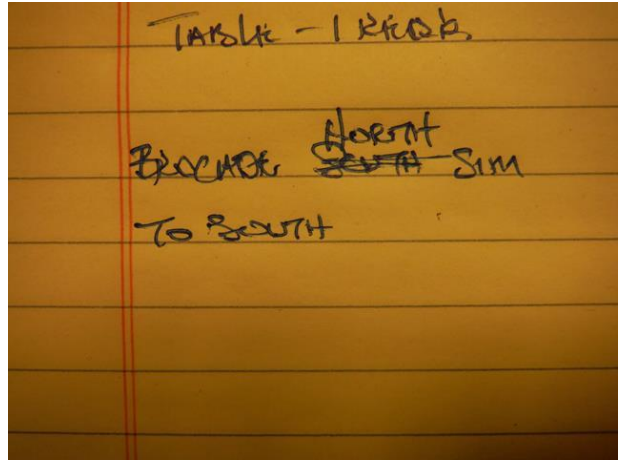 TABLE - 1
NORTH
BROCADE SOUTH SIM
TO SOUTH